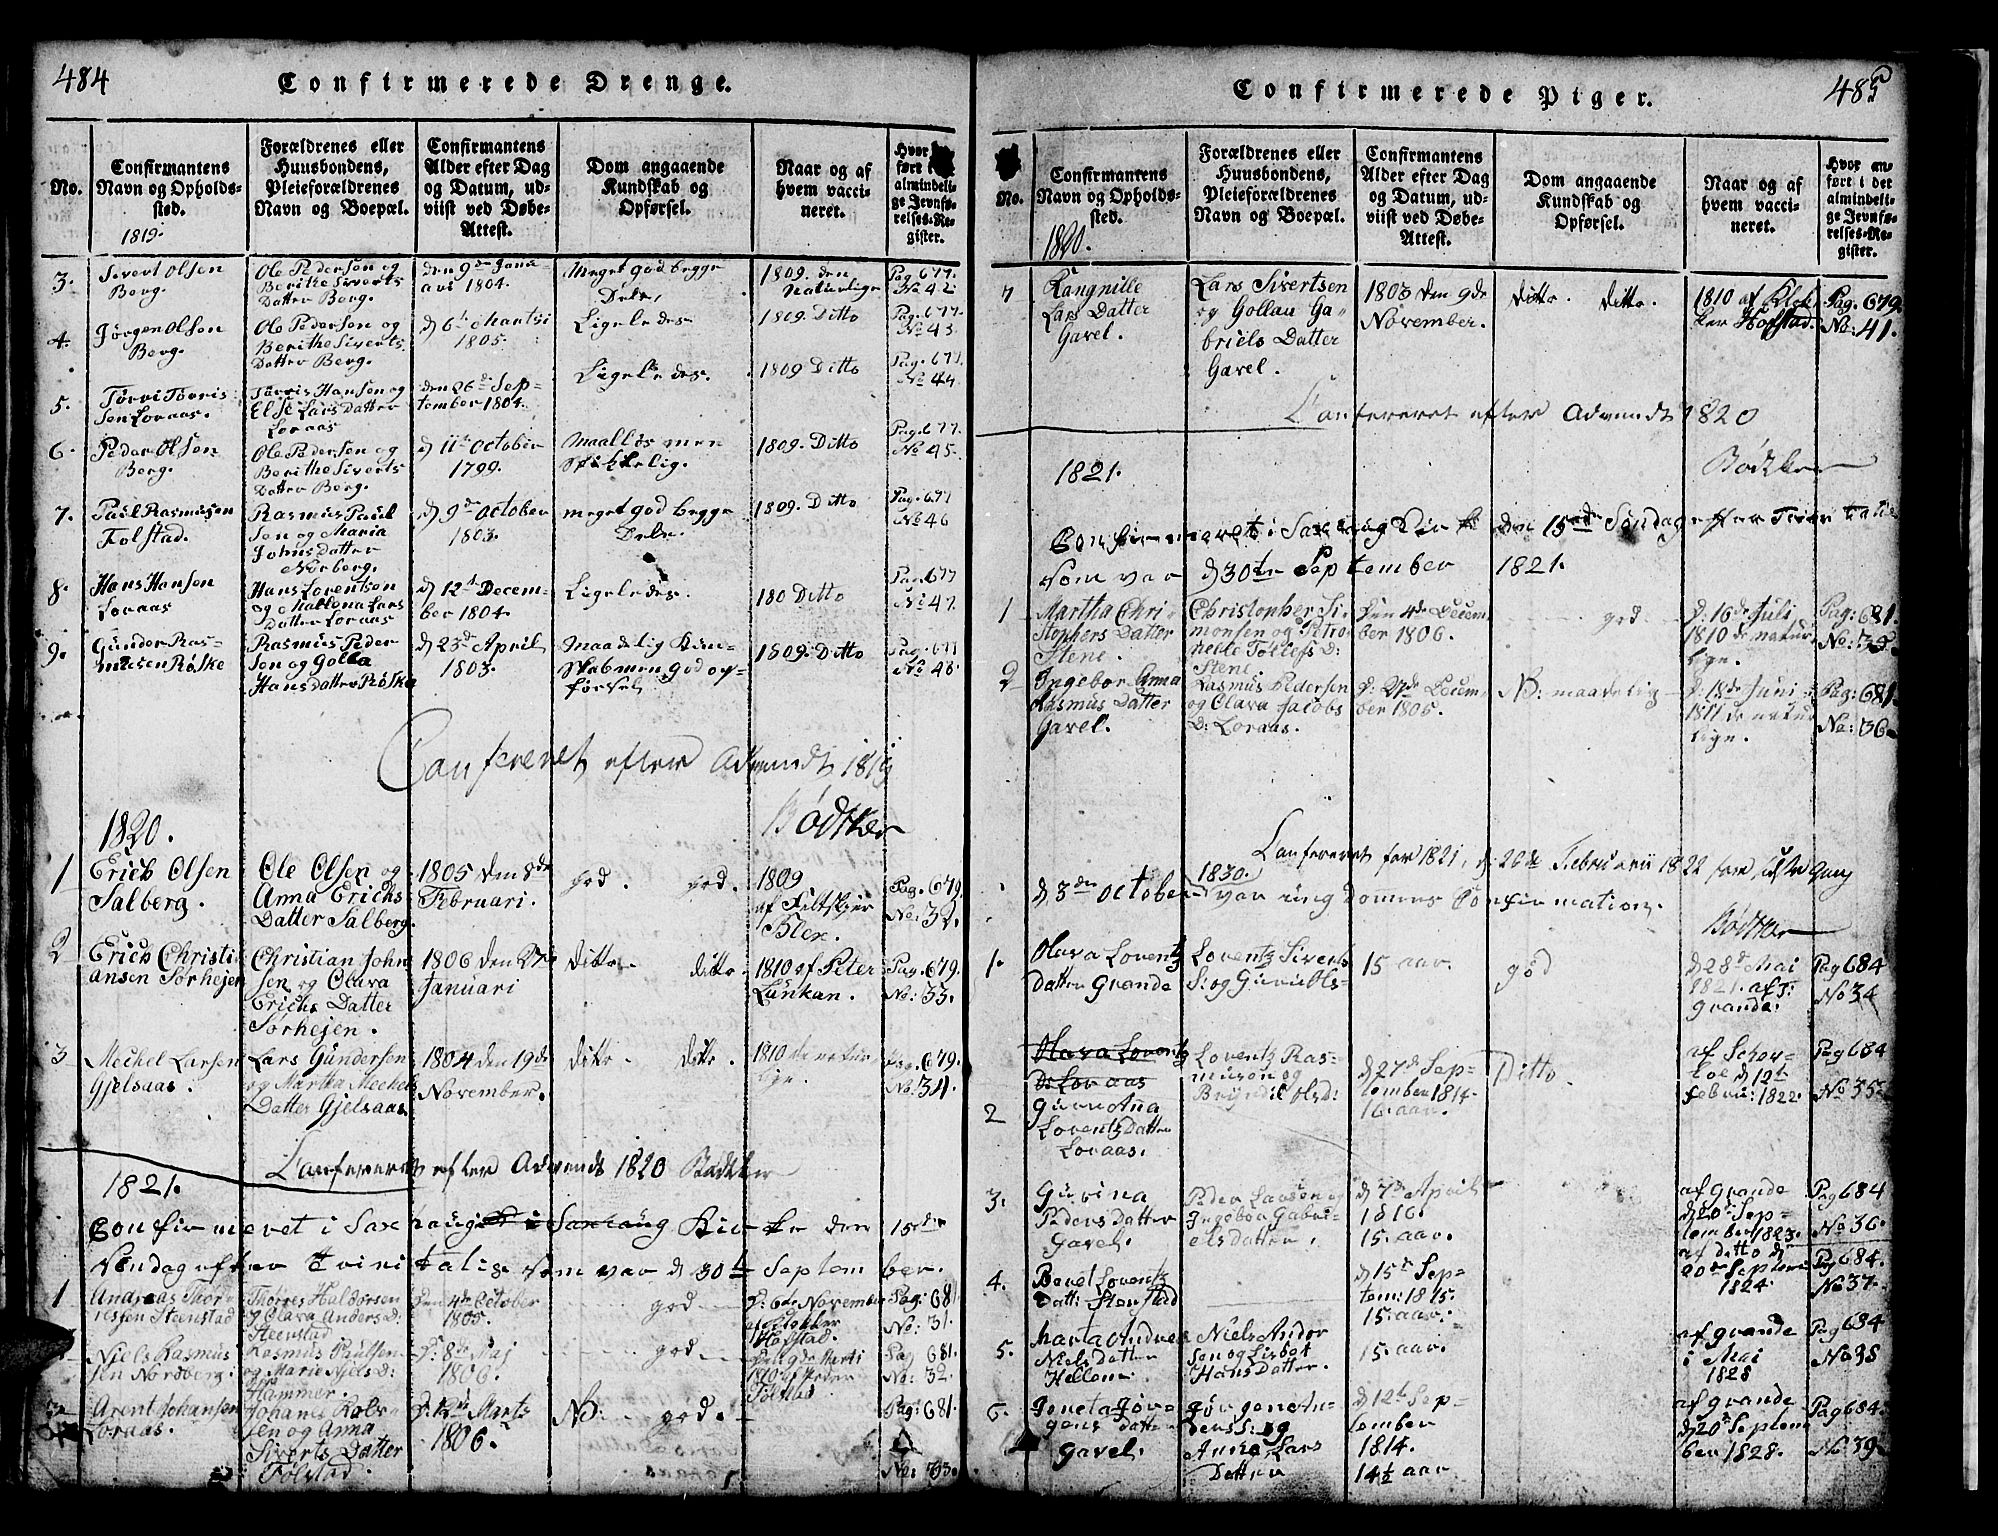 484
Confirmerede Drenge.
No.
Confirmantens
Navn og Opholds-
sted.
1819.
Forældrenes eller
Huusbondens,
Pleieforældrenes
Navn og Boepæl.
Confirmantens
Alder efter Dag
og Datum, ud-
viist ved Døbe-
Attest.
Dom angaaende
Kundskab og
Opførsel.
Naar og af
hvem vacci-
neret.
Hvor
ført i
almindeli-
ge Jevnfø-
relses-Re-
gister.
3.
Sivert Olsen
Berg.
Ole Pedersen og
Berithe Siverts
Datter Berg.
den 9de Janu
ari 1804.
Meget god begge
Dele,
1809. den
Naturlige
Pag. 677.
No 42.
4.
Jørgen Olsen
Berg.
Ole Pedersen og
Berithe Siverts
Datter Berg.
d 6t Martsi
1805.
Ligeledes
1809. Ditto
Pag. 677.
No 43.
5.
Torris
sen Loraas.
Torris Hansen og
Else Lars Datter
Loraas
den 26de Sep-
tember 1804.
Ligeledes.
1809 Ditto
Pag. 677.
No 44
6.
Peder Olsen
Berg.
Ole Pedersen og
Berithe Siverts
Datter Berg.
d 11te October
1799.
Maalløs men
skikkelig.
1809. Ditto
Pag. 677.
No 45.
7.
Paul Rasmusen
Folstad.
Rasmus Paul
sen og Maria
Johns Datter
Norberg.
d 9de October
1803.
meget god begge
Dele.
1809. Ditto
Pag. 677
No 46
8.
Hans Hansen
Loraas
Hans Lorentsen
og Mallena Lars
Datter Loraas
d 12t Decem-
ber 1804.
Ligeledes.
180 Ditto
Pag. 677
No 47.
9.
Gunder Ras-
musen Røske
Rasmus Peder
sen og Golla
Hansdatter Røske
d 23de April
1803.
Maadelig Kun-
skab men god op-
førsel
1809. Ditto
Pag. 677
No 48.
Confereret efter Advendt 1819
Bødtker
1820.
1
Erich Olsen
Salberg.
Ole Olsen og
Anna Erichs
Datter Salberg.
1805 den 8de
Februari.
god. god.
1809
af Feltskjær
Blex.
Pag. 679.
No: 32.
2
Erich Christi
ansen Sorhejen
Christian John
sen og Clara
Erichs Datter
Sorhejen.
1806 den 27de
Januari
ditto. ditto.
1810 af Peter
Lunkan.
Pag. 679.
No: 33.
3
Mechel Larsen
Gjelsaas.
Lars Gundersen
og Martha Mechels
Datter Gjelsaas.
1804 den 19de
November.
ditto. ditto.
1810 de natur
lige.
Pag. 679.
No: 34.
Confereret efter Advendt 1820 Bødtker
1821.
Confirmeret i Saxhaug i Saxhaug Kirke den 15de
Søndag efter Trinitatis som var d 30te September.
1
Andreas Thor-
ressen Steenstad
Thorres Haldorsen
og Clara Anders D:
Steenstad
Den 4de October
1805.
god
D: 6te November
af Klokker
Hofstad.
Pag: 681.
No: 31.
Niels Rasmus
sen Nordberg.
Rasmus Paulsen
og Marie Niels D:
Hammer.
D: 8de Maj
1806.
god
Den 9de Marti
1810 af Peder
Folstad
Pag 681.
No: 32.
3
Arent Johansen
Loraas.
Johanes
sen og Anna
Siverts Datter
Folstad.
Marti
1806.
N: god.
Pag: 681.
No: 33.
485
Confirmerede Piger.
No.
Confirmantens
Navn og Opholds-
sted.
1820.
Forældrenes eller
Huusbondens,
Pleieforældrenes
Navn og Boepæl.
Confirmantens
Alder efter Dag
og Datum, ud-
viist ved Døbe-
Attest.
Dom angaaende
Kundskab og
Opførsel.
Naar og af
hvem vacci-
neret.
Hvor an-
ført i det
almindeli-
ge Jevnfø-
relses-Re-
gister.
7
Rangnille
Lars Datter
Gavel.
Lars Sivertsen
og Gollau Ga-
briels Datter
Gavel.
1803 den 9de
November.
ditto. ditto.
1810 af Klok-
ker Hofstad.
Pag. 679.
No: 41.
Confereret efter Advendt 1820
Bødtker
1821.
Confirmeret i Saxhaug Kirke den 15de Søndag efter Trinitatis
som var d 30te September 1821.
1
Martha Chri-
stophers Datter
Stene.
Christopher Si-
monsen og Petro
nelle Tolless D:
Stene.
Den 4de Decem-
ber 1806.
god
D: 16de Juli
1810 de natur
lige.
Pag: 681.
No: 35.
2
Ingebor Anna
Rasmus Datter
Gavel.
Rasmus Pedersen
og Clara Jacobs
D: Loraas.
D: 27de Decem-
ber 1805.
N: maadelig
D: 18de Juni
1811 de natur
lige.
Pag: 681.
No: 36.
Confereret for 1821, d: 26de Februarii 1822 før
Bødtker
d 3de October 1830. var ungdomens Confirmation.
1.
Olava Lorentz
datter Grande
Lorentz Siverts
S: og Guru Ols-
15 aar.
god
d 28de Mai
1821. af T:
Grande.
Pag 684
No 34
Olava Lorentz
D: Loraas
2
Guru Anna
Lorentz Datter
Loraas.
Lorentz Ras-
musen og
Bryndil Olsd:
d 27de Sep-
tember 1814.
16 aar.
Ditto.
af Schev-
loe d 12te
febru: 1822.
Pag 684
No 35
3.
Gurina
Peders Datter
Gavel.
Peder Larsen og
Ingebor Gabri-
elsdatter.
d 7de April
1816.
15. aar.
af Grande
d 20de Sep-
tember 1823.
Pag 684
No 36.
4.
Beret Lorentz
Datt: Stenstad
d 15de Sep-
tem: 1815.
15. aar.
af Ditto d
20de Septem
1824.
Pag 684.
No 37.
5.
Marta Andrea
Niels Datter
Hellem.
Niels Ander
sen og Lisbet
Hans Datter.
15. aar.
af Grande
i Mai
1828
Pag 684
No 38
6.
Joneta Jør-
gens Datter
Gavel.
Jørgen An-
ders S: og
Anne Lars
Datter
d 12te Sep-
tember
1814.
14½ aar
af Grande
d 20de Septem
ber 1828.
Pag 684.
No 39.